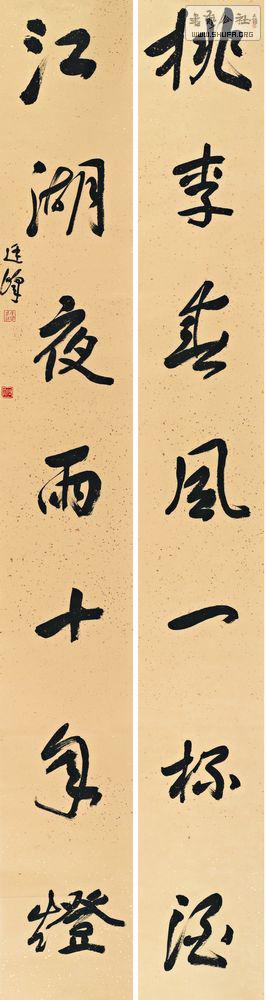 桃李春風一杯酒
江湖夜雨十年燈
WWW.SHUFA.ORG